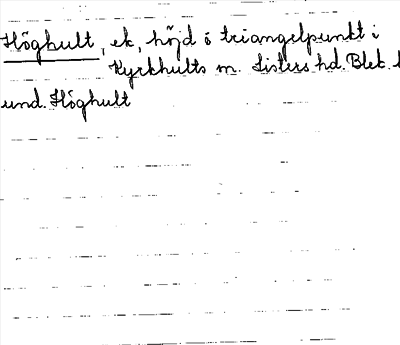 Höghult, ek, höjd o triangelpunkt i
Kyrkhults sn. Listers hd. Blek. l
und. Höghult